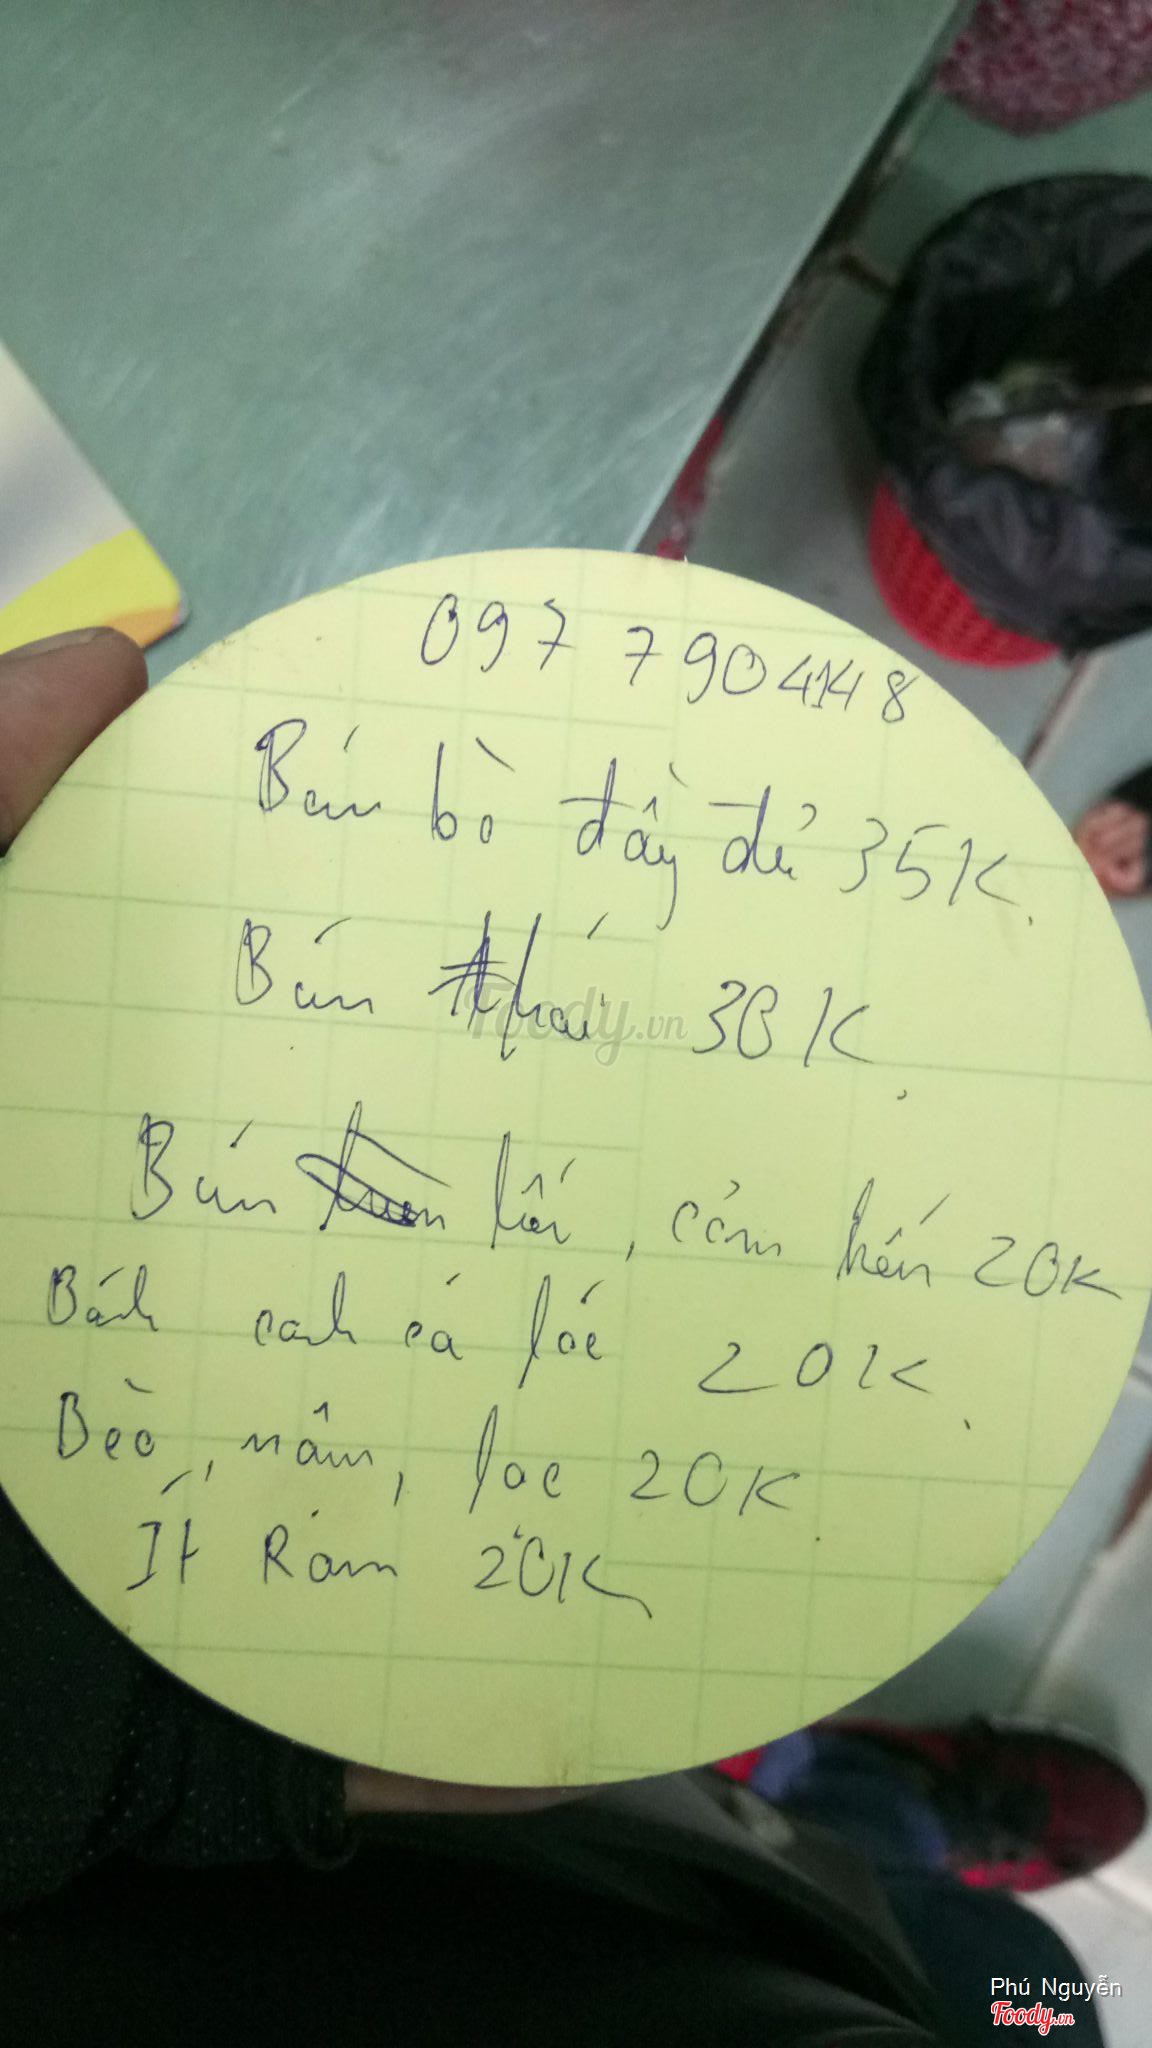 097 7904148
Bún bò đầy đủ 35K.
Bún 30K.
Foody.vn
Bún hến, cơm hến 20K
Bánh canh cá lóc 20K.
Bèo, nậm, lọc 20K.
Ít Ram 20K
Phú Nguyễn
Foody.vn